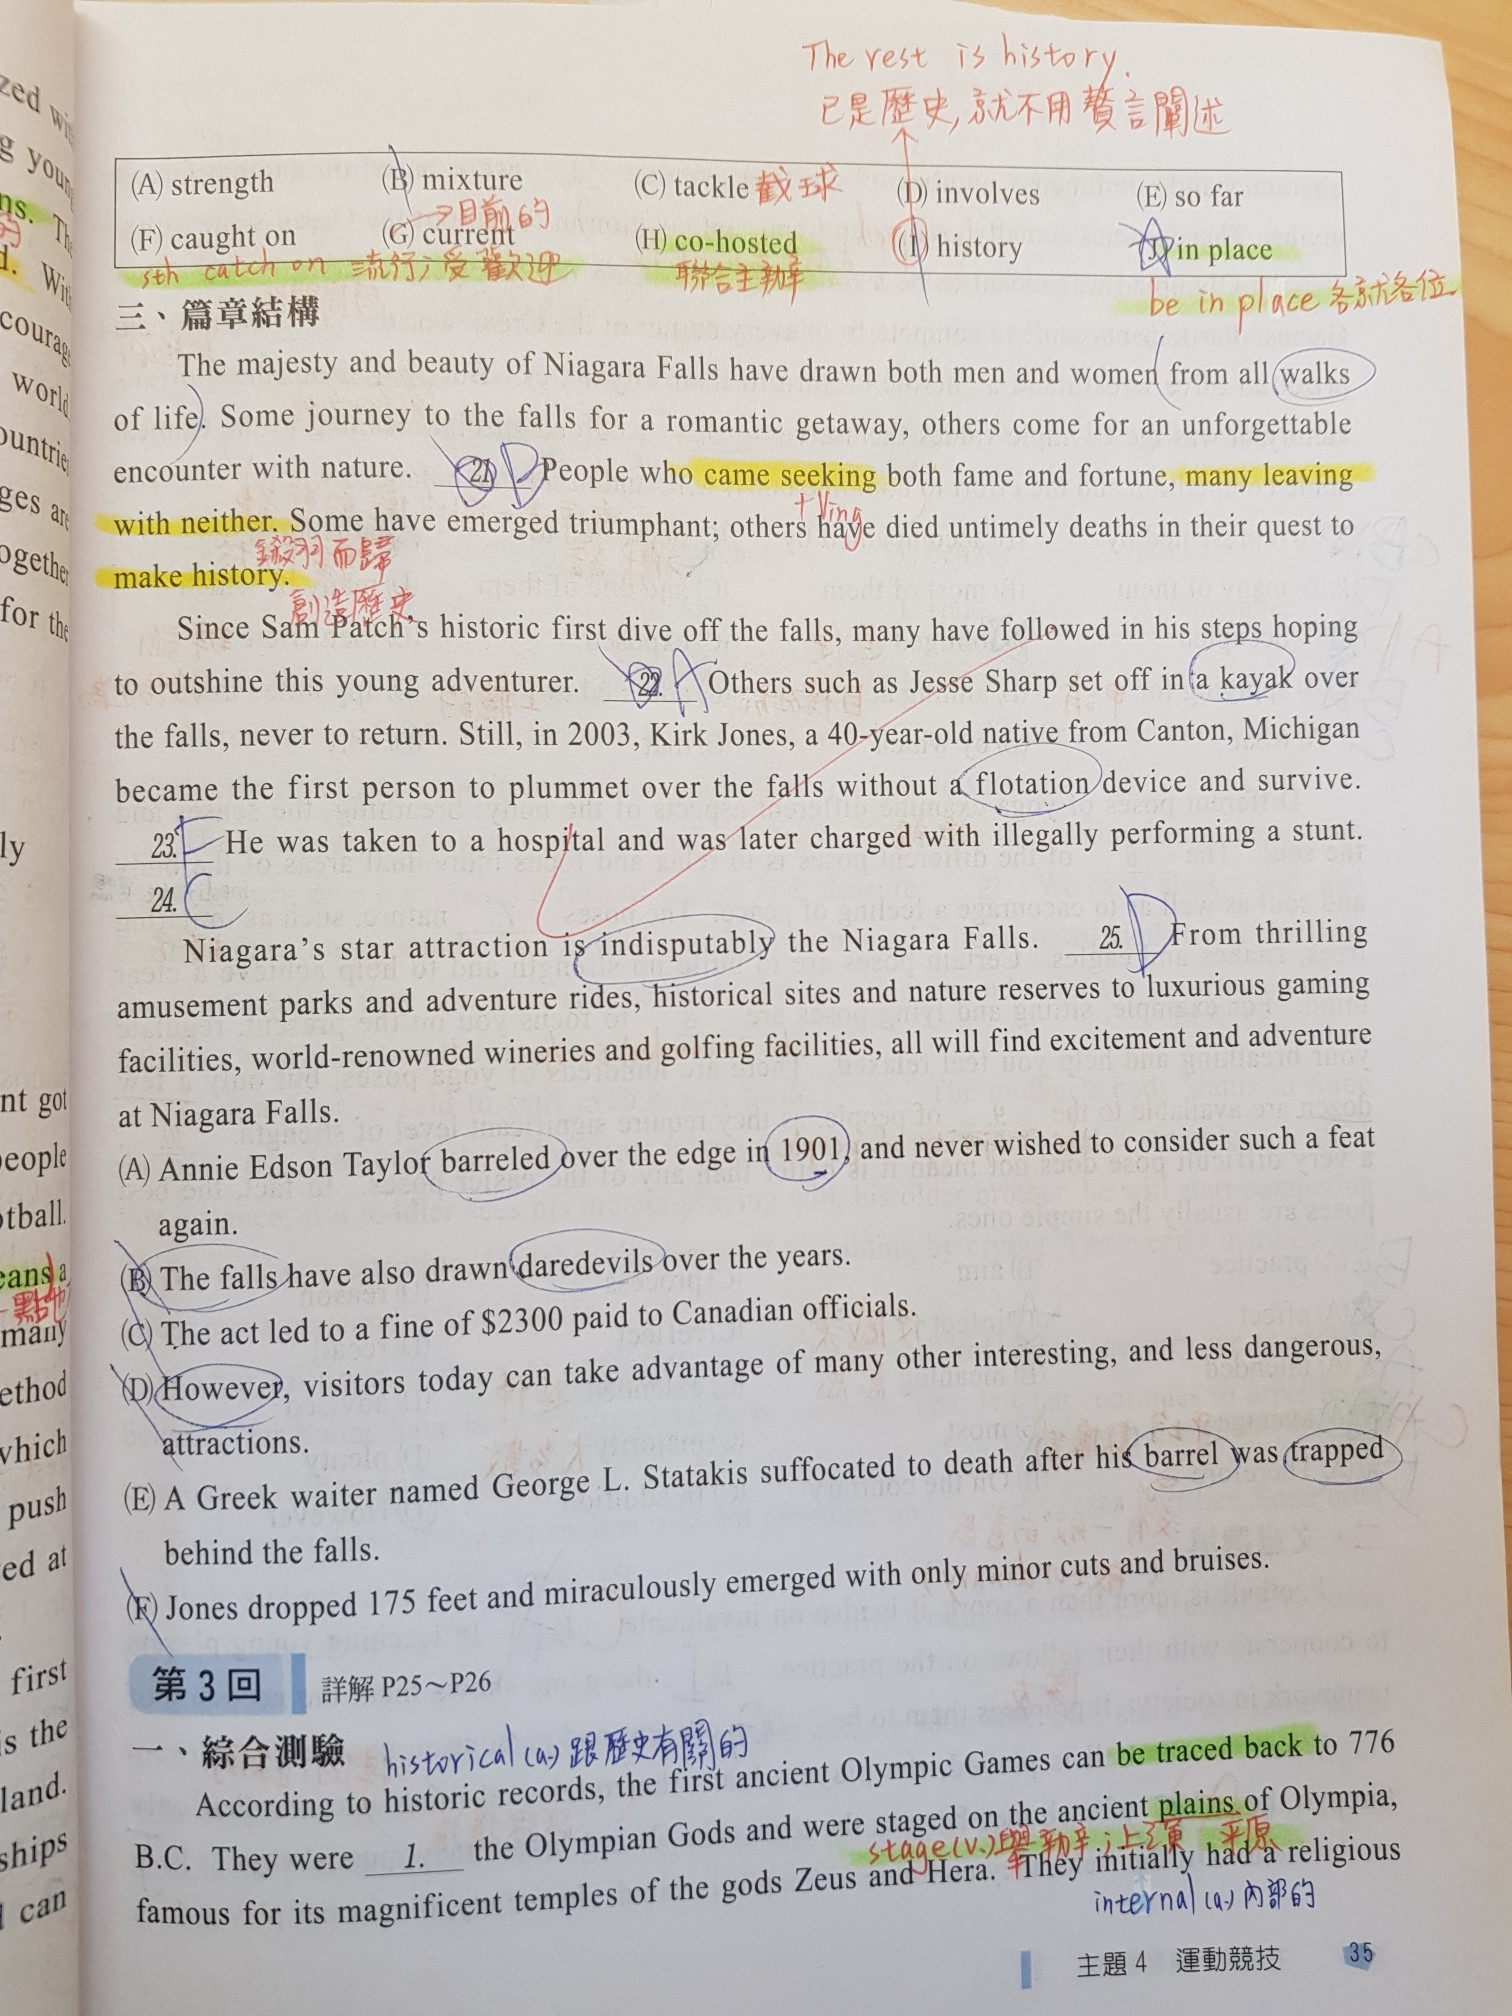 The rest is history.
已是歷史,就不用贅言闡述
(A) strength (B) mixture (C) tackle 截球 (D) involves (E) so far
→目前的
(F) caught on (G) current (H) co-hosted (I) history (J) in place
sth catch on 流行;受歡迎 聯合主辦
be in place 各就各位
三、篇章結構
The majesty and beauty of Niagara Falls have drawn both men and women from all walks
of life. Some journey to the falls for a romantic getaway, others come for an unforgettable
encounter with nature. 21. D People who came seeking both fame and fortune, many leaving
+Ving
with neither. Some have emerged triumphant; others have died untimely deaths in their quest to
鎩羽而歸
make history.
創造歷史
Since Sam Patch's historic first dive off the falls, many have followed in his steps hoping
to outshine this young adventurer. 22. A Others such as Jesse Sharp set off in a kayak over
the falls, never to return. Still, in 2003, Kirk Jones, a 40-year-old native from Canton, Michigan
became the first person to plummet over the falls without a flotation device and survive.
23. E He was taken to a hospital and was later charged with illegally performing a stunt.
24. C
Niagara's star attraction is indisputably the Niagara Falls. 25. D From thrilling
amusement parks and adventure rides, historical sites and nature reserves to luxurious gaming
facilities, world-renowned wineries and golfing facilities, all will find excitement and adventure
at Niagara Falls.
(A) Annie Edson Taylor barreled over the edge in 1901, and never wished to consider such a feat
again.
(B) The falls have also drawn daredevils over the years.
(C) The act led to a fine of $2300 paid to Canadian officials.
(D) However, visitors today can take advantage of many other interesting, and less dangerous,
attractions.
(E) A Greek waiter named George L. Statakis suffocated to death after his barrel was trapped
behind the falls.
(F) Jones dropped 175 feet and miraculously emerged with only minor cuts and bruises.
第 3 回 詳解 P25～P26
一、綜合測驗 historical (a.) 跟歷史有關的
According to historic records, the first ancient Olympic Games can be traced back to 776
B.C. They were 1. the Olympian Gods and were staged on the ancient plains of Olympia,
stage (v.) 舉辦;上演 平原
famous for its magnificent temples of the gods Zeus and Hera. They initially had a religious
internal (a.) 內部的
主題 4 運動競技 35